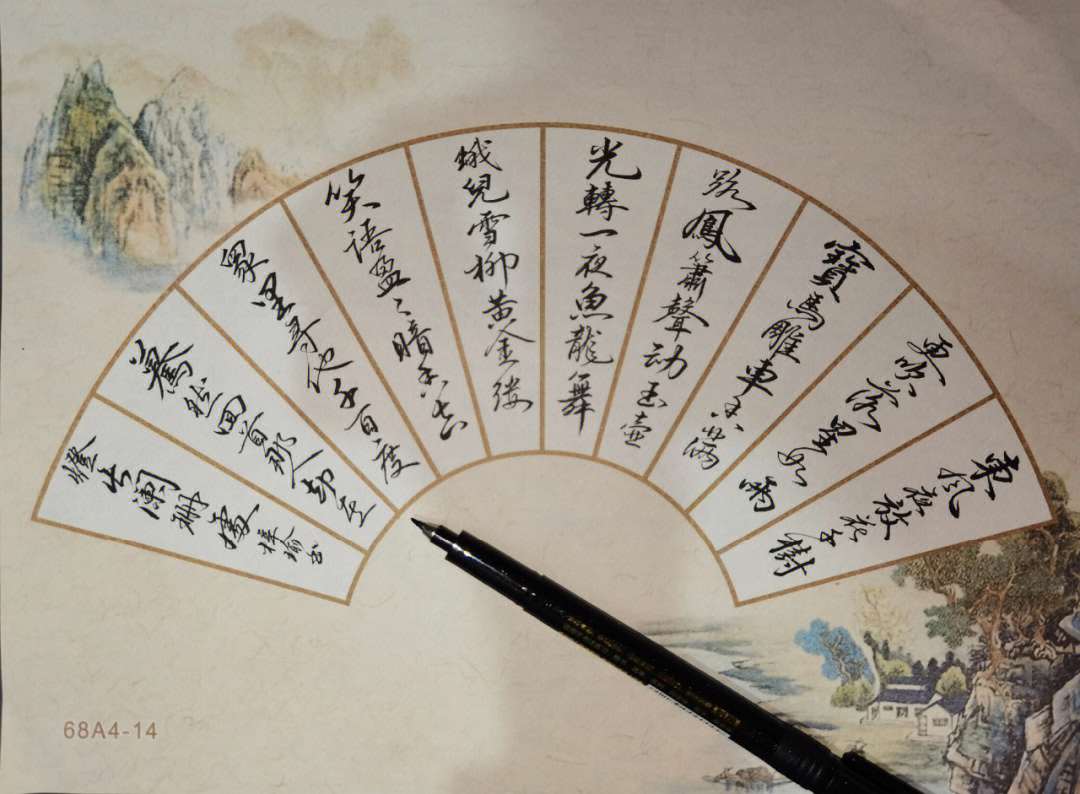 東風夜放花千樹
更吹落星如雨
寶馬雕車香满
路鳳簫聲动玉壺
光轉一夜魚龍舞
蛾兒雪柳黄金缕
笑语盈〻暗香去
眾里寻他千百度
驀然回首那人却在
燈火阑珊處
梓瑜书
68A4-14